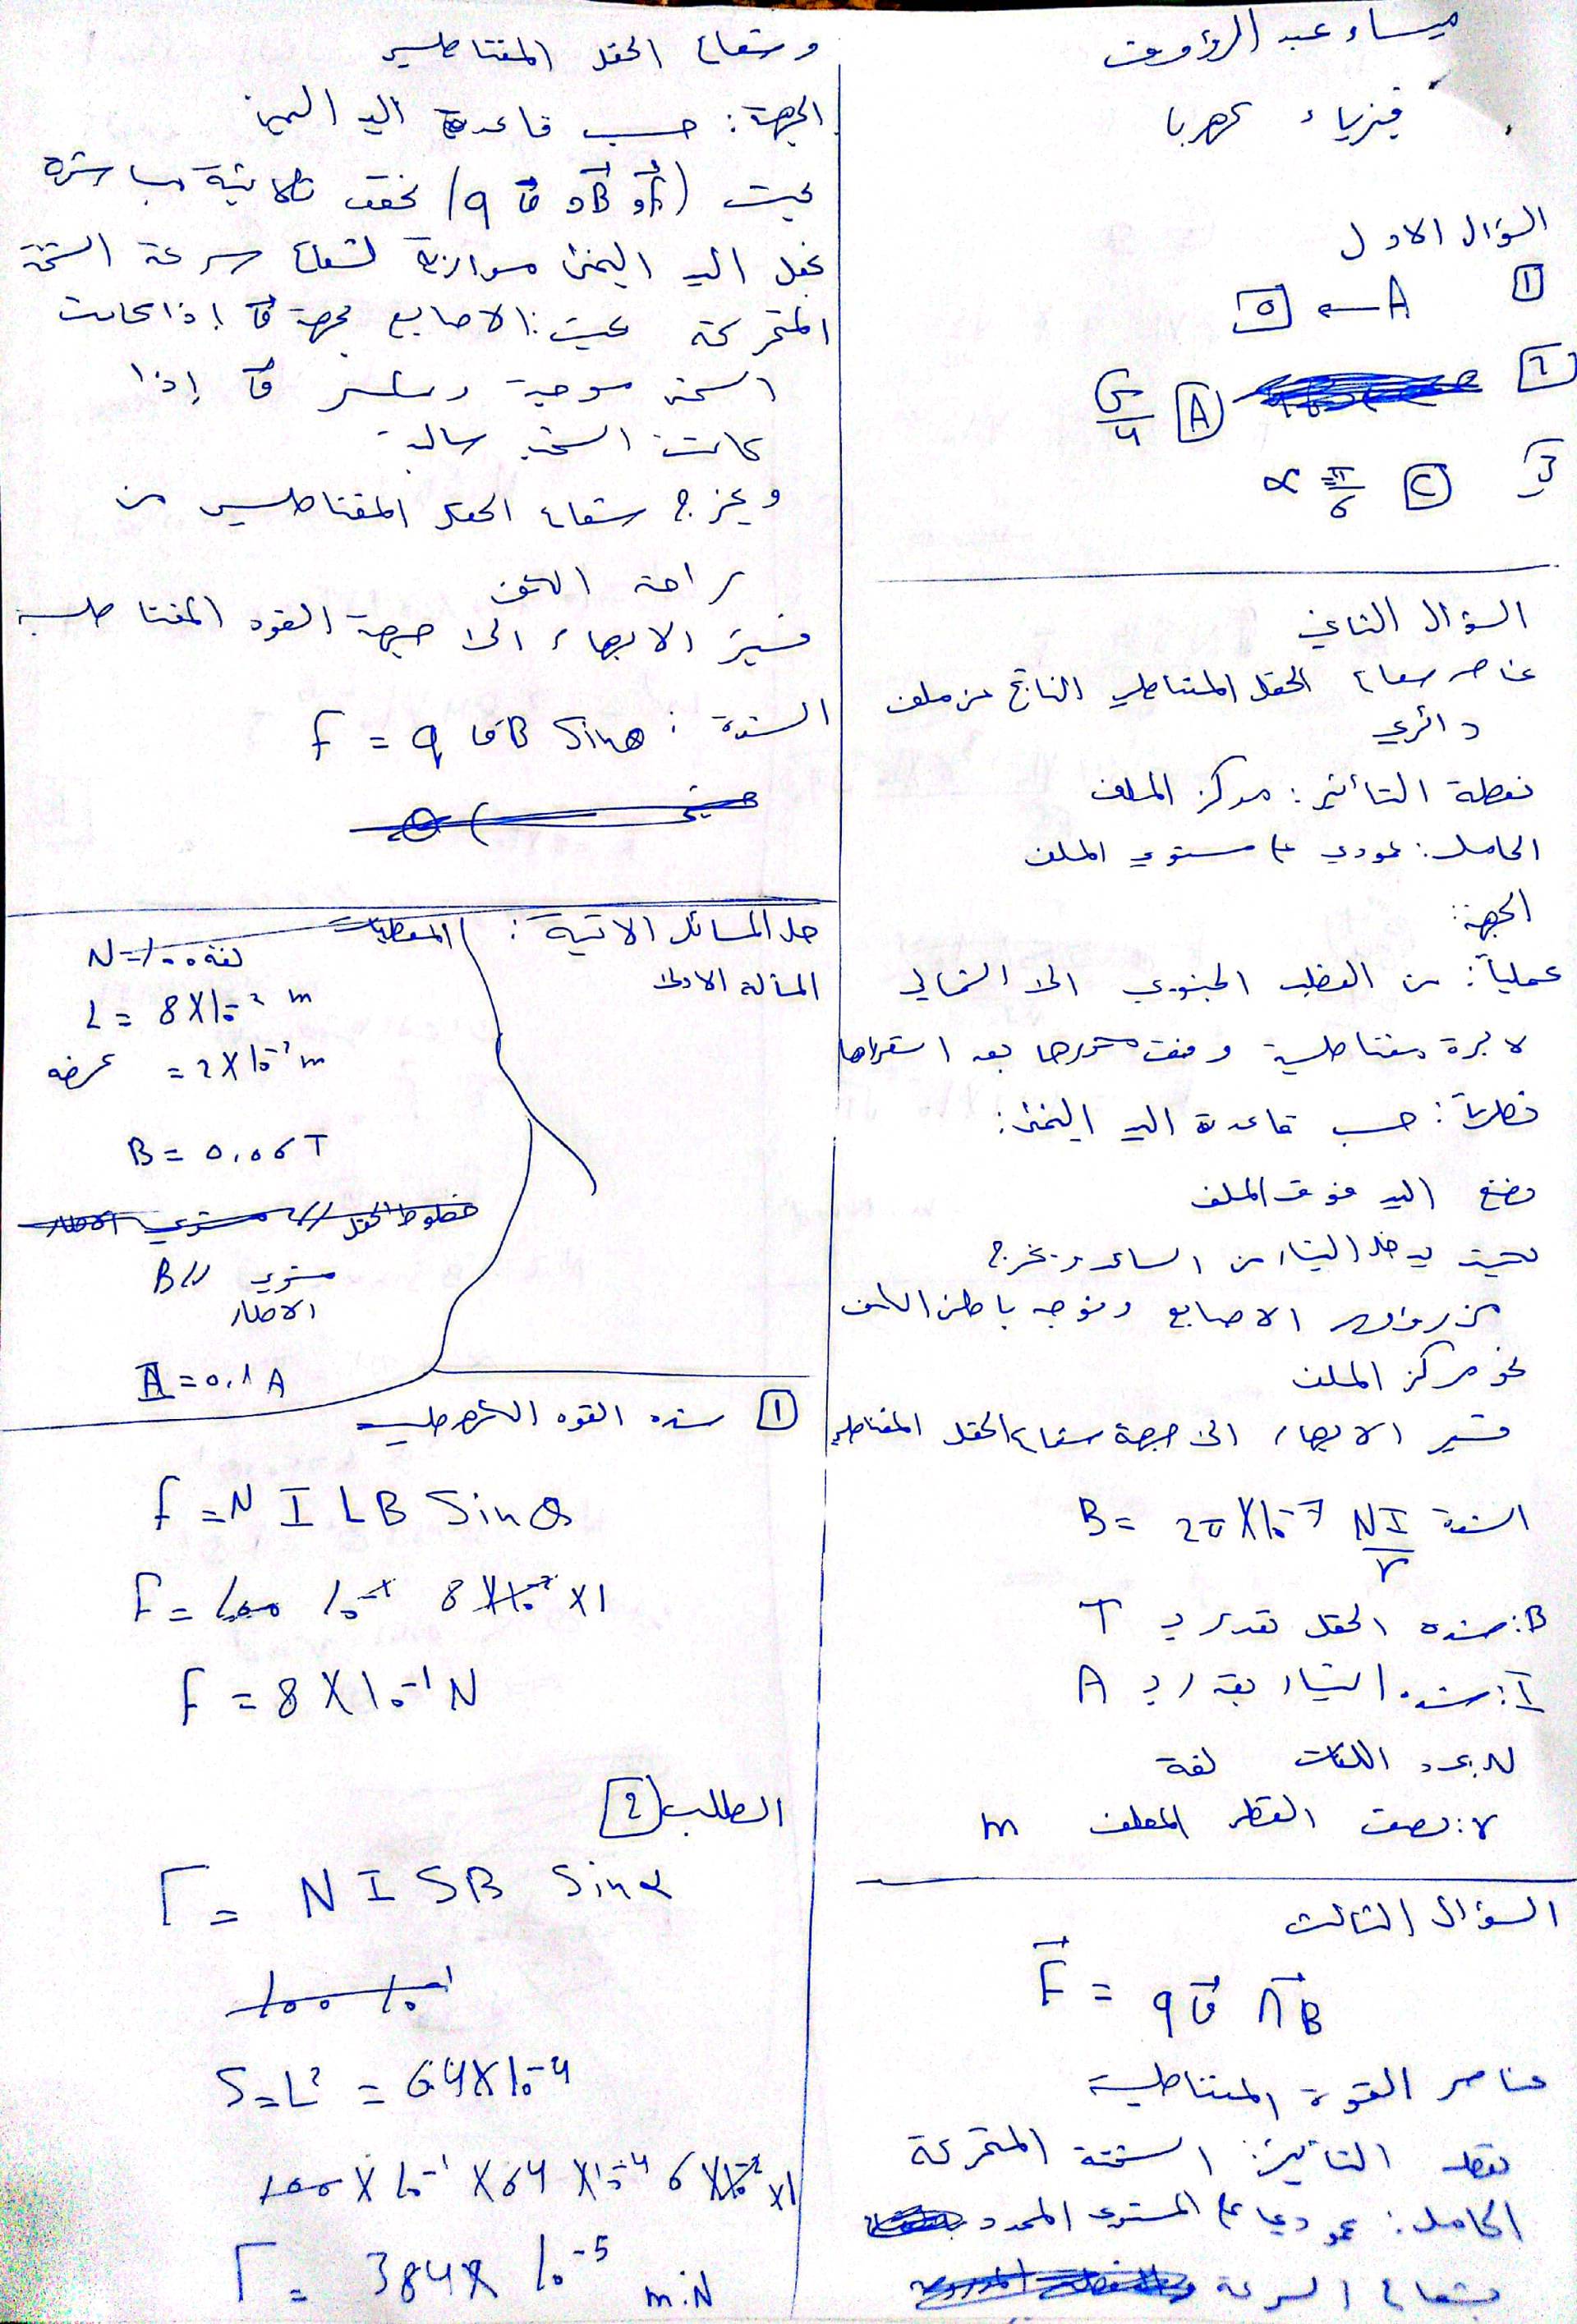 ميساء عبد الرؤوف
فيزياء كهربا
السؤال الاول
1 A ← 0
2 A
3 C
السؤال الثاني
عناصر شعاع الحقل المغناطيسي الناتج عن ملف
دائري
نقطة التأثير: مركز الملف
الحامل: عمودي على مستوي الملف
الجهة:
عملياً: من القطب الجنوبي الى الشمالي
لابرة مغناطيسية وفق محورها بعد استقرارها
نظرياً: حسب قاعدة اليد اليمنى:
نضع اليد فوق الملف
بحيث يدخل التيار من الساعد ويخرج
من رؤوس الاصابع ونوجه باطن الكف
نحو مركز الملف
فيشير الابهام الى جهة شعاع الحقل المغناطيسي
الشدة B = 2π×10⁻⁷ NI/r
B: شدة الحقل تقدر بـ T
I: شدة التيار يقدر بـ A
N: عدد اللفات لفة
r: نصف القطر الملف m
السؤال الثالث
F⃗ = q v⃗ ∧ B⃗
عناصر القوة المغناطيسية
نقطة التأثير: الشحنة المتحركة
الحامل: عمودي على المستوي المحدد
بشعاع السرعة
وشعاع الحقل المغناطيسي
الجهة: حسب قاعدة اليد اليمنى
بحيث (F⃗ و B⃗ و q v⃗) تحقق ثلاثية مباشرة
نجعل اليد اليمنى موازية لشعاع سرعة الشحنة
المتحركة بحيث: الاصابع بجهة v⃗ إذا كانت
الشحنة موجبة وبعكس v⃗ إذا
كانت الشحنة سالبة
ويخرج شعاع الحقل المغناطيسي من
راحة الكف
فيشير الابهام الى جهة القوة المغناطيسية
الشدة: F = q v B Sin θ
حل المسائل الاتية:
المسألة الاولى
المعطيات
N = 100 لفة
L = 8×10⁻² m
عرضه = 2×10⁻² m
B = 0.06 T
B // مستوي
الاطار
I = 0.1 A
1 شدة القوة الكهرطيسية
F = N I L B Sin θ
F = 100 10⁻¹ 8×10⁻² ×1
F = 8×10⁻¹ N
الطلب 2
Γ = N I S B Sin α
100 10⁻¹
S = L² = 64×10⁻⁴
100×10⁻¹×64×10⁻⁴ 6×10⁻²×1
Γ = 384×10⁻⁵ m.N